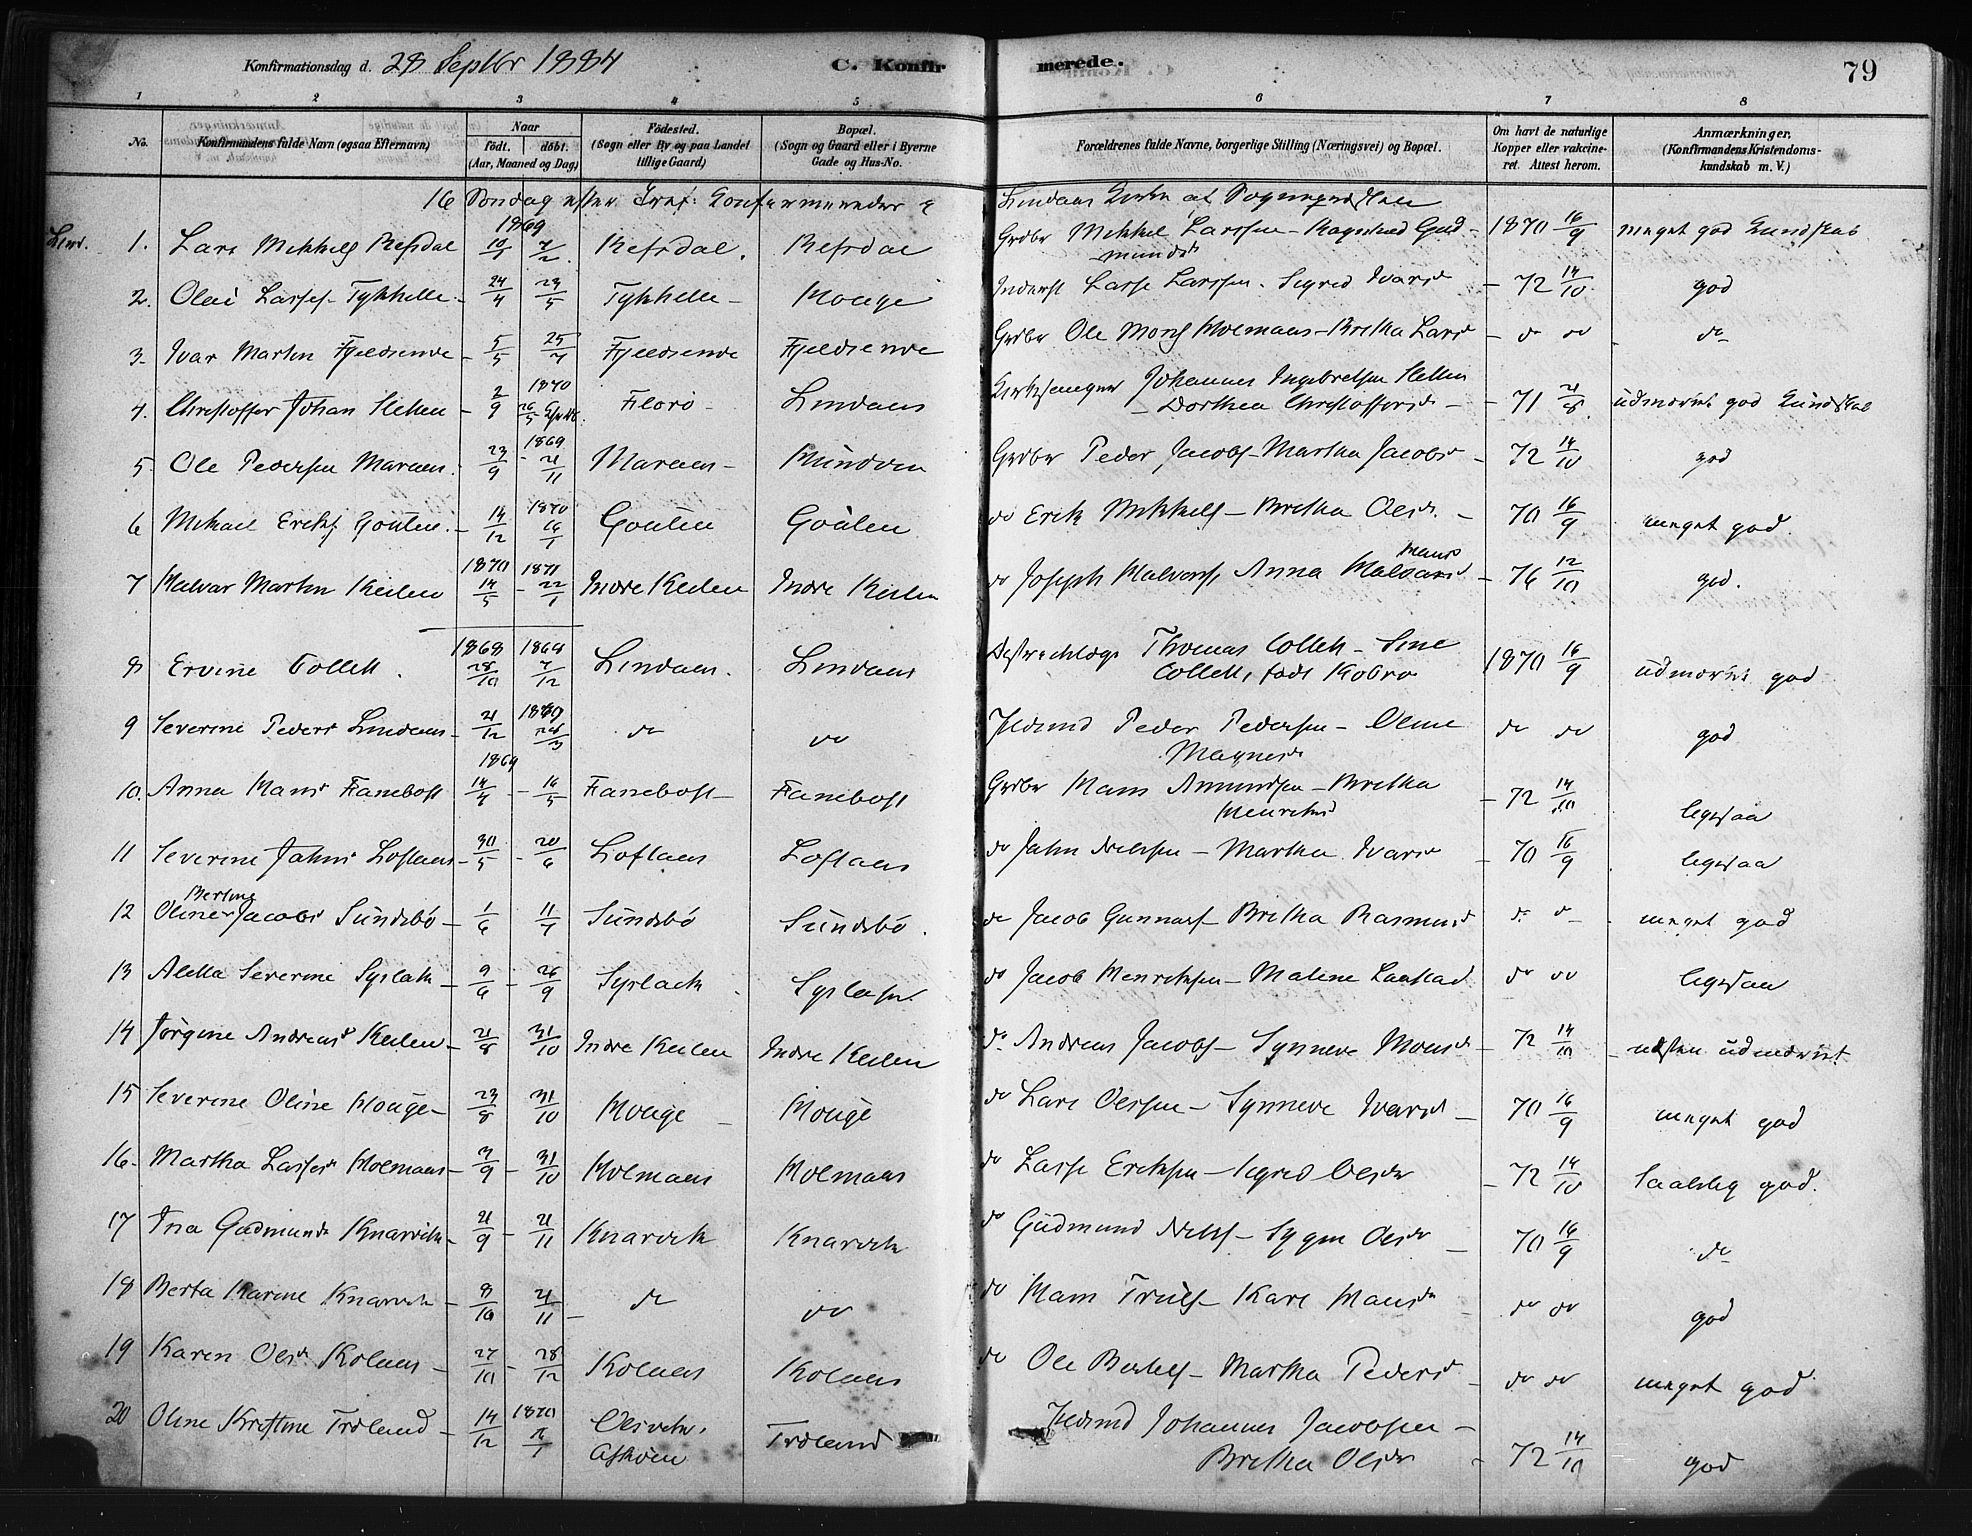 Konfirmationsdag d. 28 Septbr 1884 C. Konfirmerede. 79
1 2 3 4 5 6 7 8
No. Konfirmandens fulde Navn (ogsaa Efternavn) Naar født. døbt. (Aar, Maaned og Dag) Fødested. (Sogn eller By og paa Landet tillige Gaard) Bopæl. (Sogn og Gaard eller i Byerne Gade og Hus-No. Forældrenes fulde Navne, borgerlige Stilling (Næringsvei) og Bopæl. Om havt de naturlige Kopper eller vakcineret. Attest herom. Anmærkninger, (Konfirmandens Kristendomskundskab m. V.)
16 Søndag efter Tref: Konfirmereder i Lindaas Kirke af Sognepræsten
1869
Lind. 1. Lars Mikkels Refsdal 10/1 7/2 Refsdal. Refsdal Grdbr Mikkel Larssen - Ragnhild Gudmundsd 1870 16/9 meget god Kundskab
2. Olai Lasses. Tykhelle 24/4 23/5 Tykhelle - Houge Inderst Lasse Larssen. Sigrid Ivarsd - 72 14/10 god
3. Ivar Martin Fjeldsende - 5/5 25/7 Fjeldsende Fjeldsende Grdbr Ole Mons Holmaas - Britha Larsd - do do do
4. Christoffer Johan Hellen - 2/9 1870 26/5 Florø - Lindaas Kirkesanger Johannes Ingebretsen Hellen - Dorthea Christoffersd - - 71 21/8 udmærket god Kundskab
5. Ole Pedersen Maraas. 23/9 - 1869 21/11 Maraas - Mundven Grdbr Peder Jacobs - Martha Jacobsd - 72 14/10 god
6 Mikael Eriks Goulen. - 14/12 1870 16/1 Goulen Goulen do Erik Mikkels - Britha Olsd. - 70 16/9 meget god.
7 Halvar Martin Keilen 1870 14/5 - 1871 22/1 Indre Keilen Indre Keilen do Joseph Halvors, Anna Halvarsd Mans - 76 12/10 god.
8 Ervine Collett. 1868 28/10 1868 7/12 Lindaas. Lindaas Distriktslæge Thomas Collett - Sine Collett, født Kobro 1870 16/9 udmærket god
9 Severine Pedersd Lindaas - 21/12 1869 28/3 do do Huusmd Peder Pedersen - Oline Magnesd do do god
1869
10. Anna Mansd Fanebost 14/4 - 16/5 Fanebost - Fanebost Grdbr Mans Amundsen - Britha Henriksd - 72 14/10 ligesaa
11 Severine Jahnsd Loftaas - 30/5 - 20/6 Loftaas Loftaas do Jahn Nielssen - Martha Ivarsd - 70 16/9 ligesaa
12 Oline Bertine Jacobsd Sundsbø - 1/6 11/7 Sundsbø Sundsbø. do Jacob Gunnars - Britha Rasmusd do do meget god
13 Aletta Severine Syslach - 9/6 - 26/9 Syslach Syslach. do Jacob Henriksen - Maline do do ligesaa
14 Jørgine Andreasd Keilen - 21/8 31/10 Indre Keilen Indre Keilen do Andreas Jacobs - Synneve Monsd - 72 14/10 næsten udmærket
15 Severine Oline Houge - 23/8 31/10 Houge - Houge do Lars Olssen - Synneve Ivarsd - 70 16/9 meget god
16. Martha Lassesd Holmaas - 3/9 - 31/10 Holmaas Holmaas do Lasse Eriksen - Sigrid Olsdr - 72 14/10 taalelig god.
17 Ina Gudmundsd Knarvik - 21/9 - 21/11 Knarvik Knarvik do Gudmund Niels - Sygni Olsdr - 70 16/9 do
18 Berta Karine Knarvik - 8/10 21/11 - do do do Mans Truls - Kari Mansdr - do do god
19 Karen Olsd. Kolaas - 27/10 - 28/12 Kolaas Kolaas do Ole Bertels - Martha Pedersd - do do meget god
20 Oline Kristine Troland - 14/12 1870 /1 Olsvik. Askøen Troland Huusmd Johannes Jacobsen - Britha Olsdr - 72 14/10 god